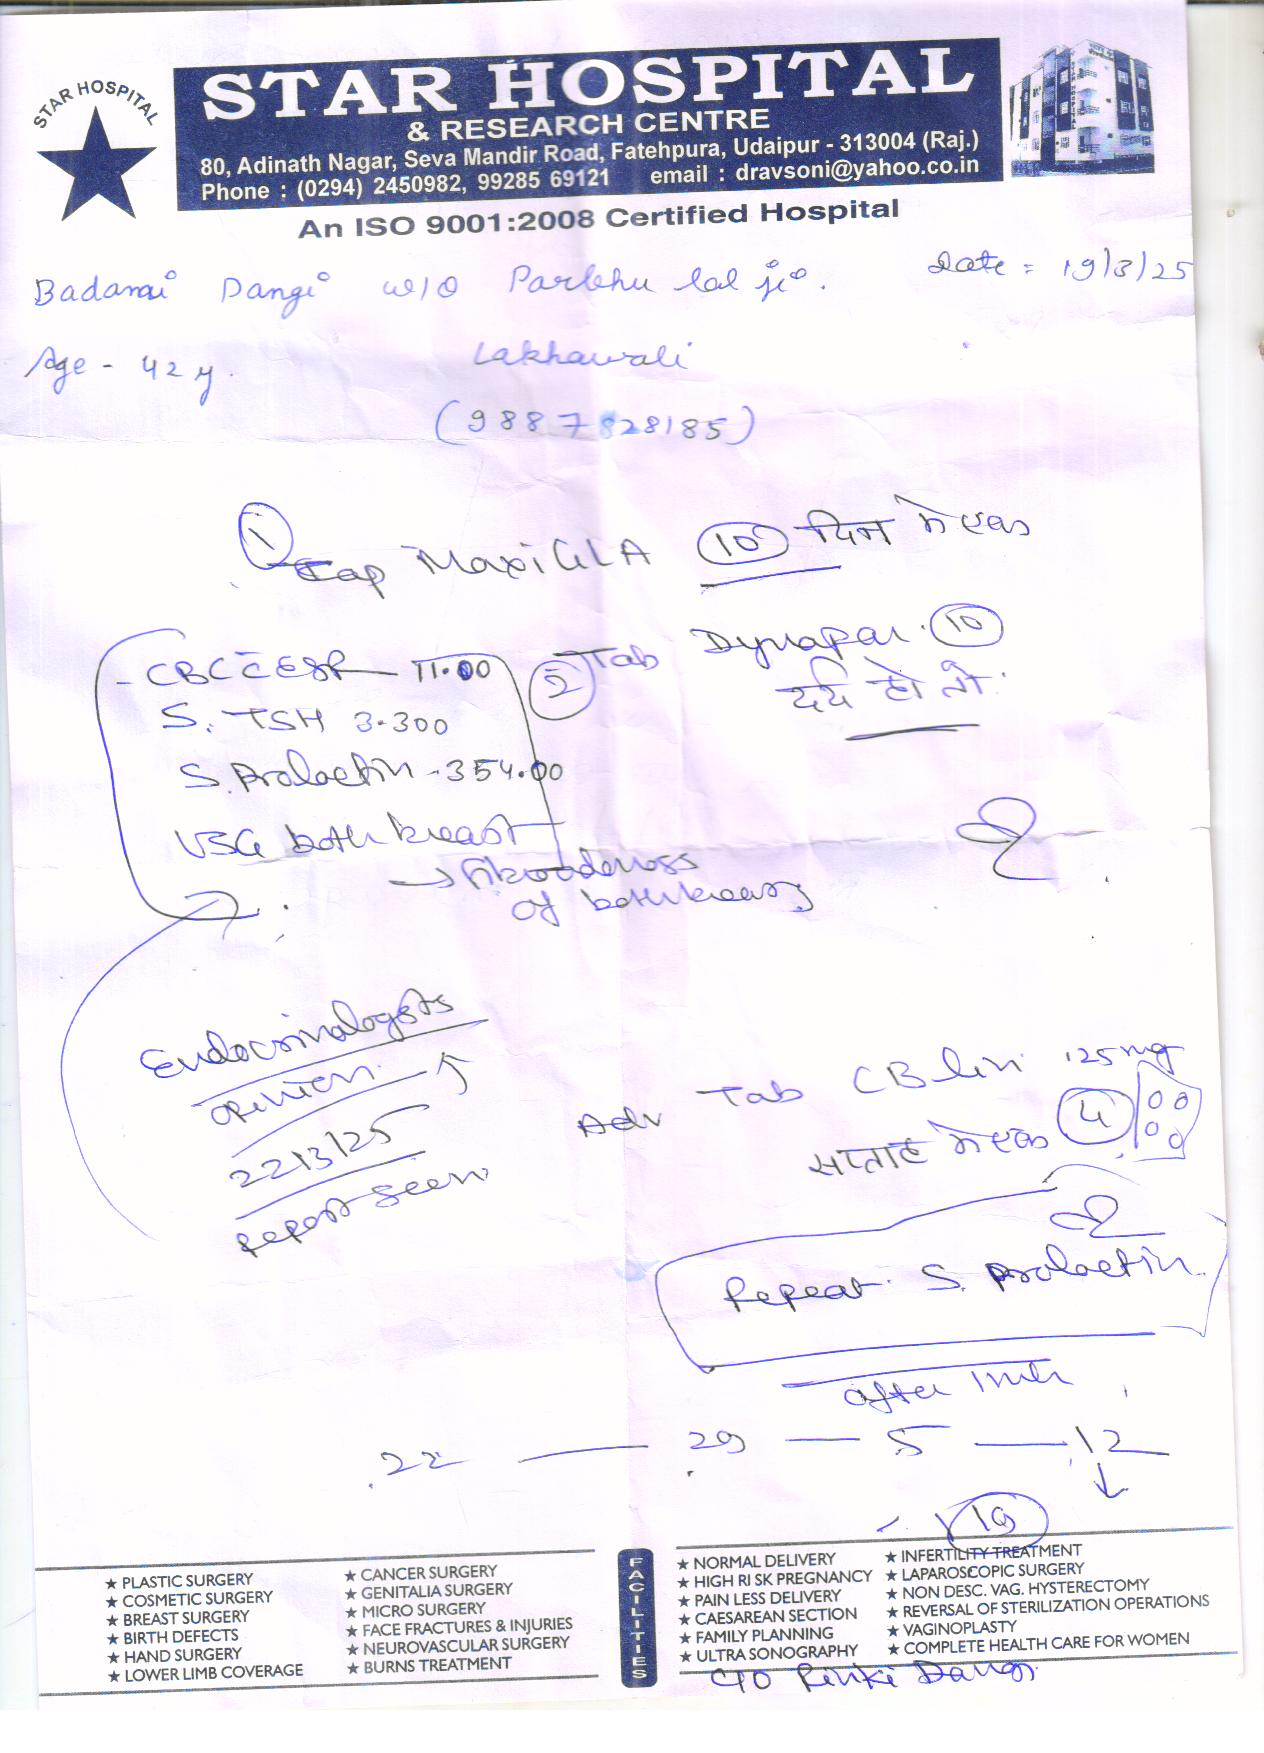 STAR HOSPITAL
STAR HOSPITAL
& RESEARCH CENTRE
80, Adinath Nagar, Seva Mandir Road, Fatehpura, Udaipur - 313004 (Raj.)
Phone : (0294) 2450982, 99285 69121 email : dravsoni@yahoo.co.in
An ISO 9001:2008 Certified Hospital
Date = 19/3/25
Badami Dangi w/o Parbhu lal ji.
Age - 42 y. Lakhawali
(9887828185)
1 Cap Maxi GLA 10 दिन मे एक
2 Tab Dynapar. 10
दर्द हो तो
- CBC C ESR - 11.00
S. TSH 3.300
S. Prolactin - 354.00
USG both breast
→ fibroadenoss
of both breasts
Endocrinologists
opinion
22/3/25
report seen
Adv Tab CB lin .25 mg
सप्ताह मे एक 4
Repeat S. Prolactin
after 1 mth
22 — 29 — 5 — 12
19
FACILITIES
★ PLASTIC SURGERY
★ COSMETIC SURGERY
★ BREAST SURGERY
★ BIRTH DEFECTS
★ HAND SURGERY
★ LOWER LIMB COVERAGE
★ CANCER SURGERY
★ GENITALIA SURGERY
★ MICRO SURGERY
★ FACE FRACTURES & INJURIES
★ NEUROVASCULAR SURGERY
★ BURNS TREATMENT
★ NORMAL DELIVERY
★ HIGH RI SK PREGNANCY
★ PAIN LESS DELIVERY
★ CAESAREAN SECTION
★ FAMILY PLANNING
★ ULTRA SONOGRAPHY
★ INFERTILITY TREATMENT
★ LAPAROSCOPIC SURGERY
★ NON DESC. VAG. HYSTERECTOMY
★ REVERSAL OF STERILIZATION OPERATIONS
★ VAGINOPLASTY
★ COMPLETE HEALTH CARE FOR WOMEN
C/O Pinki Dangi